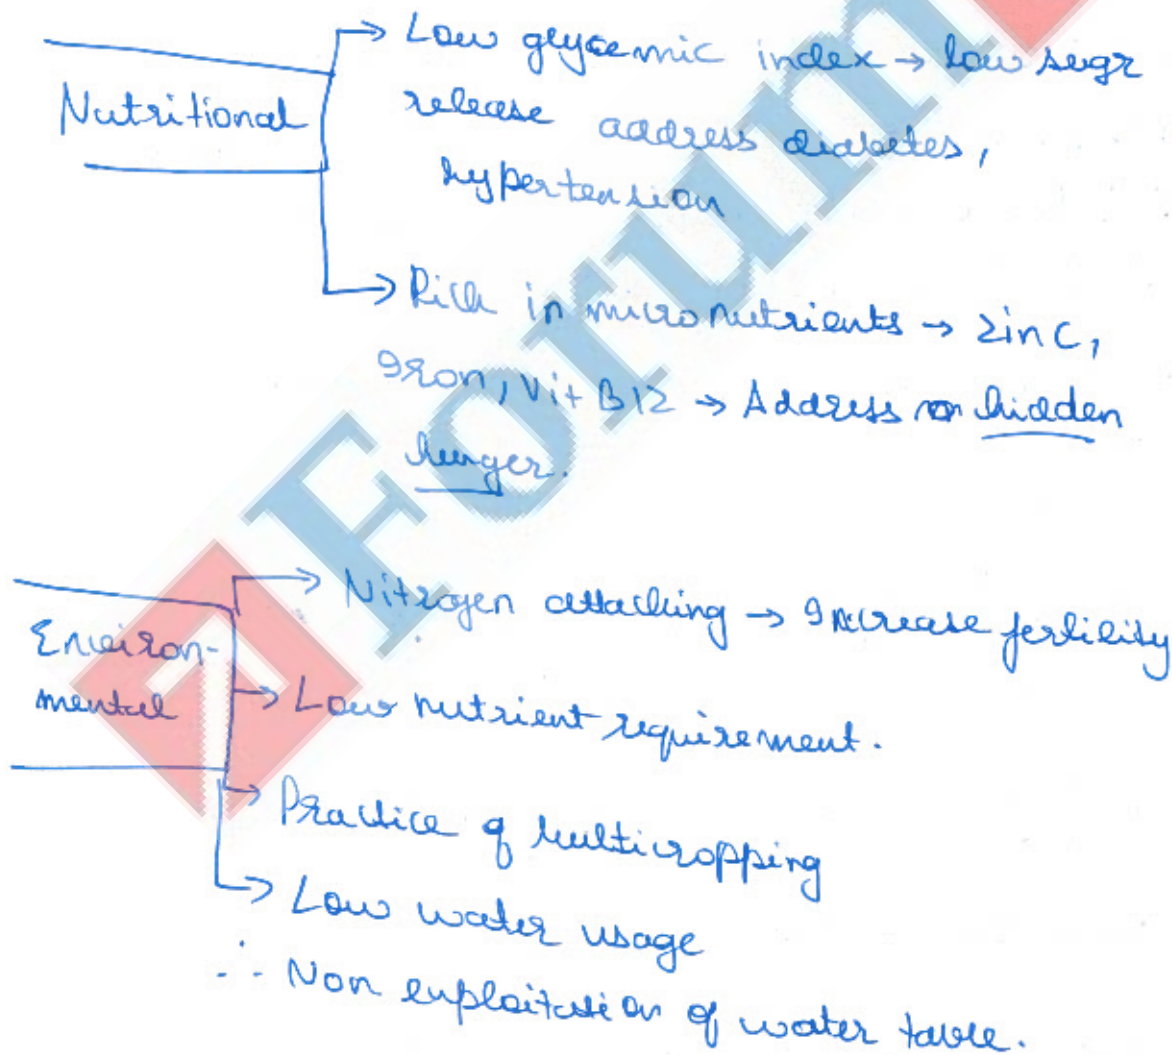 Nutritional
→ Low glycemic index → low sugr
release address diabetes,
hypertension
→ Rich in micronutrients → zinc,
Iron, Vit B12 → Address hidden
hunger.
Environ-
mental
→ Nitrogen attaching → Increase fertility
→ Low nutrient requirement.
→ Practice of multicropping
→ Low water usage
∴ Non exploitation of water table.
Forum